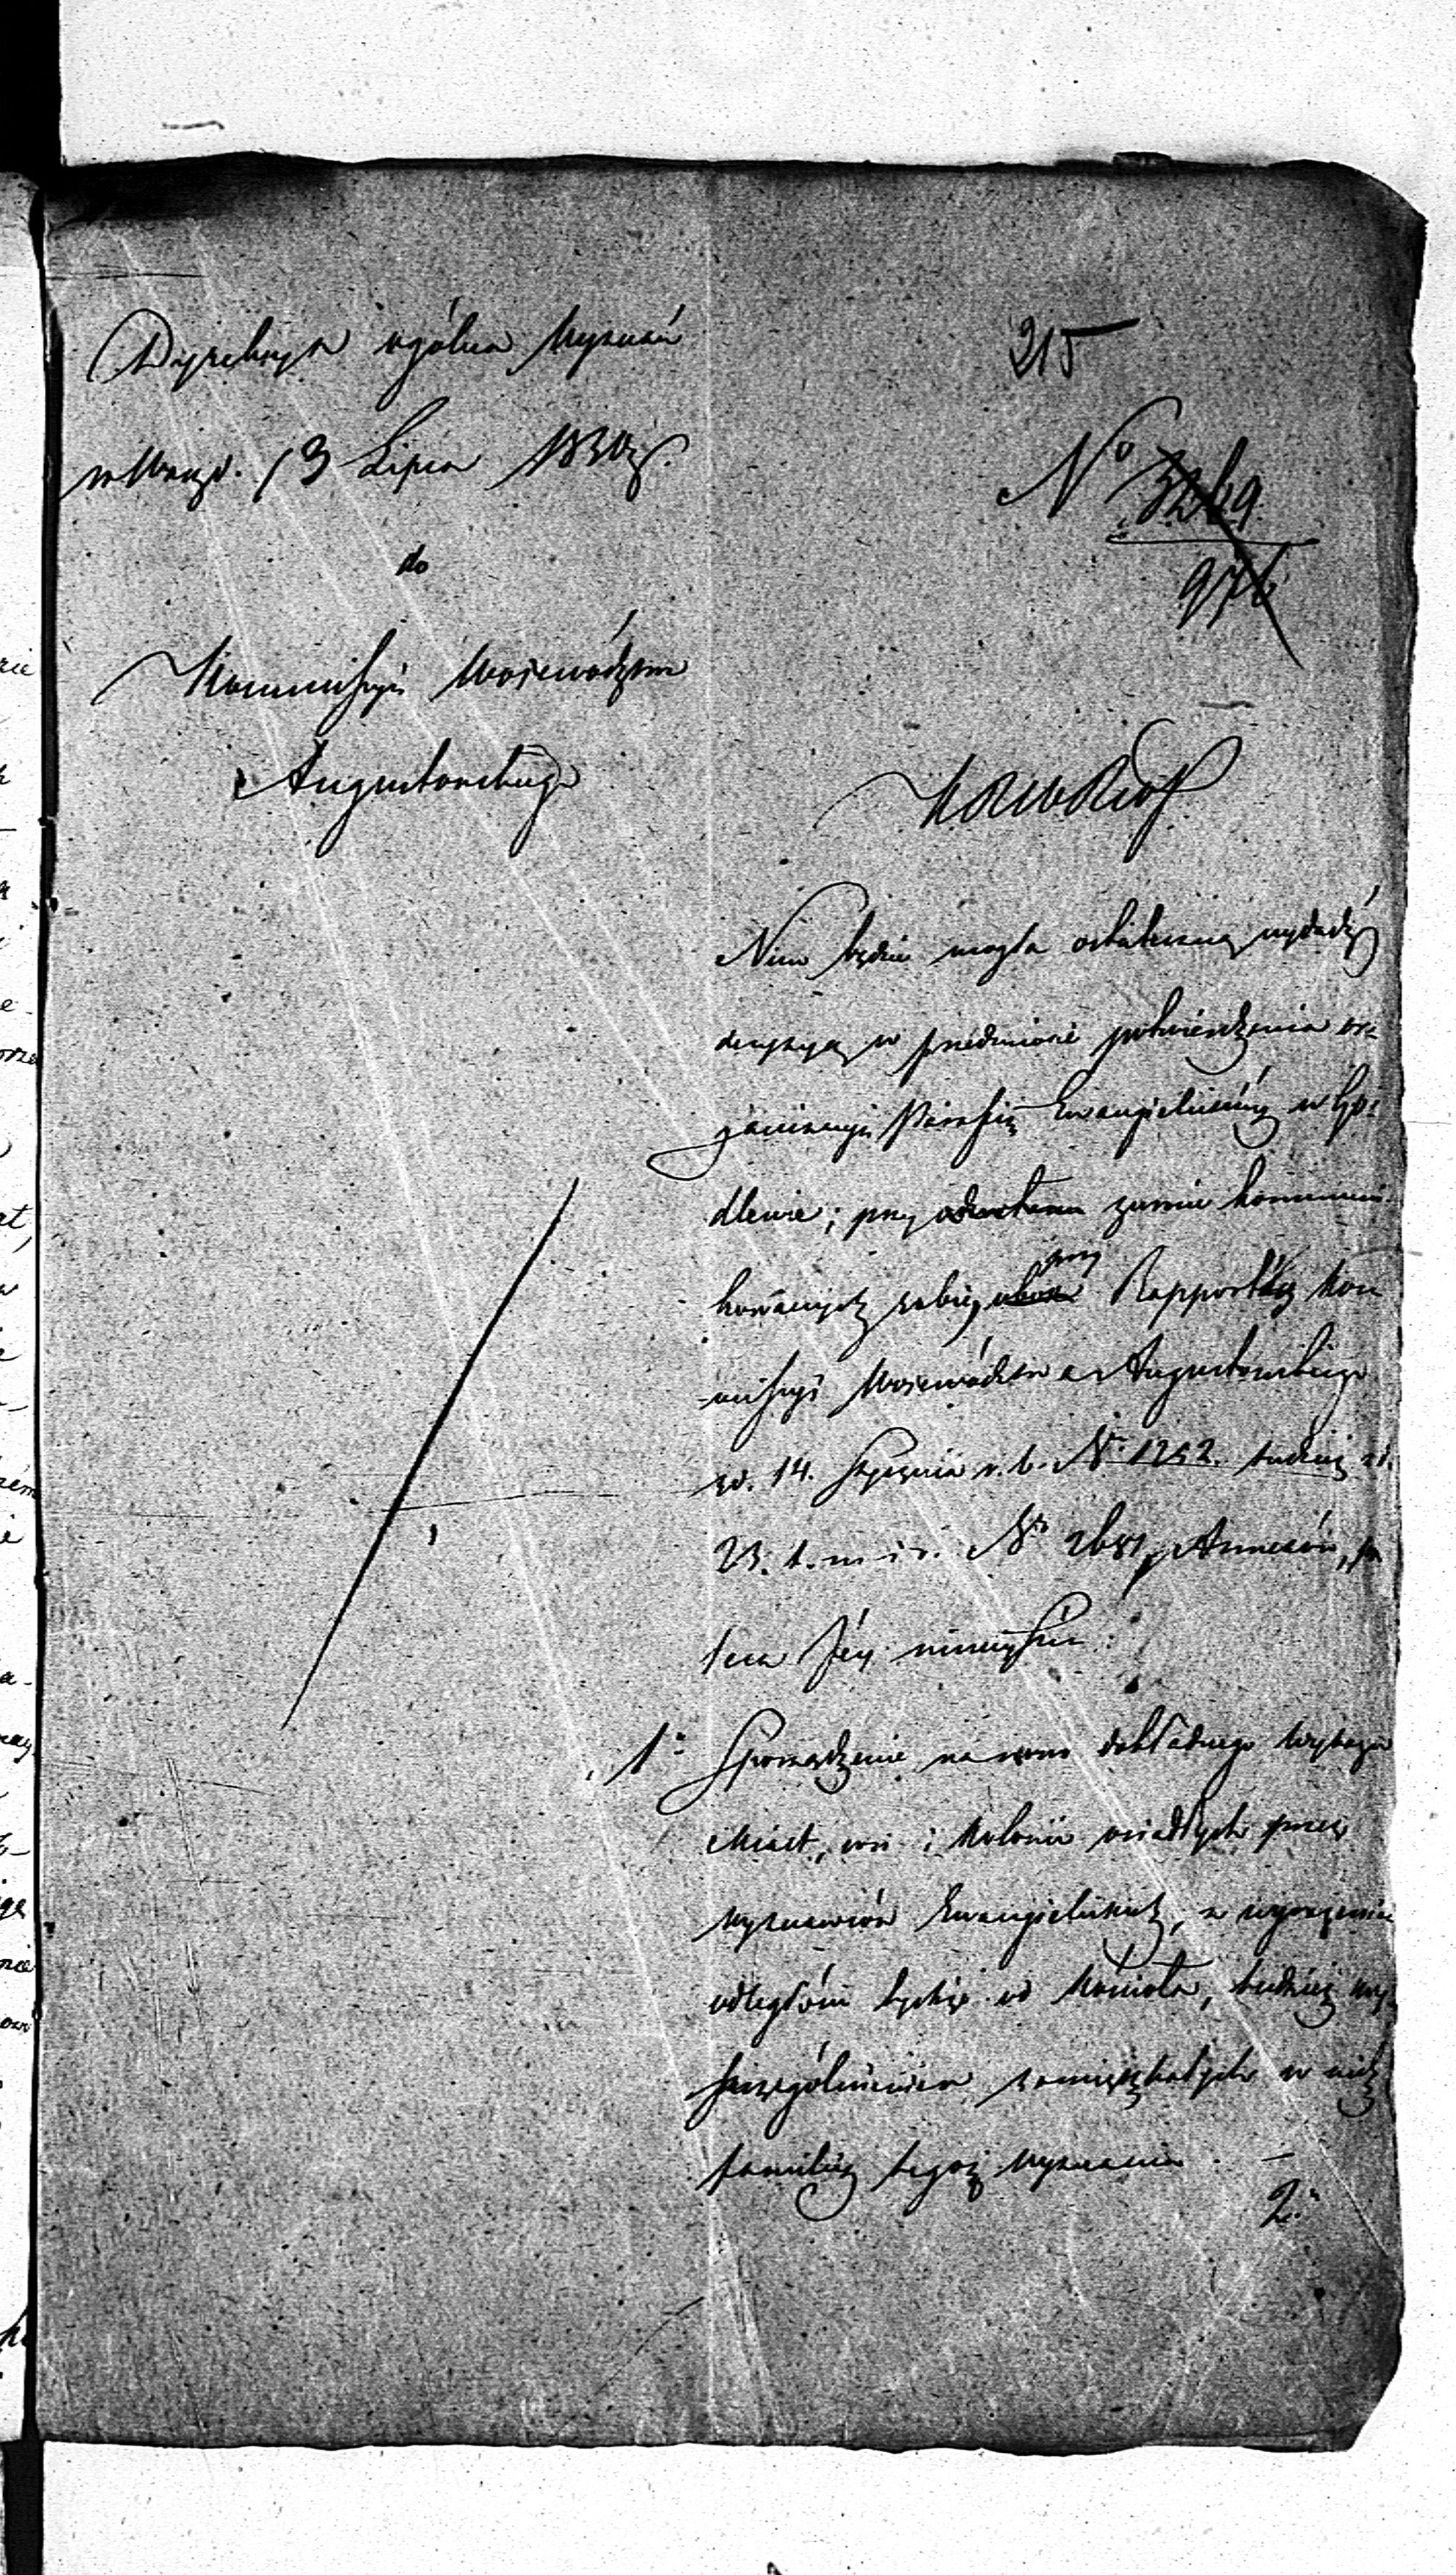 Dyrekcya ogólna Wyznań
w Warsz. 13 Lipca 1830 r.
do
Kommissyi Województwa
Augustowskiego
215
No 3269
976
Nim będzie mogła ostateczną wydadź
decyzyą w przedmiocie potwierdzenia or-
ganizacyi Parafii Ewangielickiéy w Go-
dlewie; przy zwrocie kommuni-
kowanych sobie przy Rapportach Kom
missyi Województwa Augustowskiego
zd. 14. Stycznia r. b. Nr 1252. tudzież zd.
23. t. m. i r. Nr 2681, Annexów, po
leca Jéy ninieyszém:
1o Sporządzenie na nowo dokładnego Wykazu
Miast, wsi i Kolonii osiadłych przez
wyznawców Ewangielickich, z wyrażeniem
odległości tychże od Kościoła, tudzież wy-
szczególnieniem zamieszkałych w nich
familii tegoż wyznania. —
2o